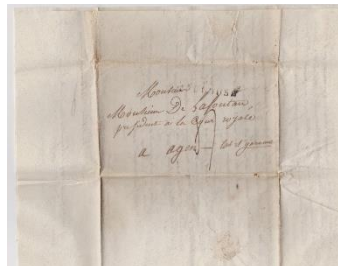 Monsieur
Monsieur De Lafontan,
président a la Cour royale
a agen — Lot et garonne